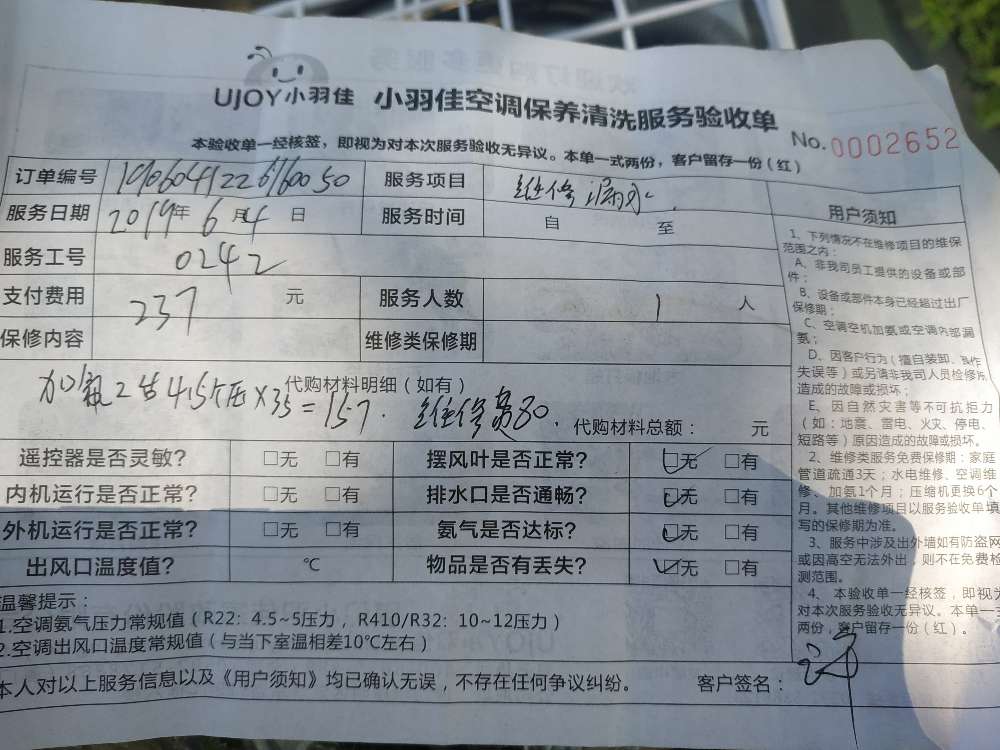 UJOY小羽佳 小羽佳空调保养清洗服务验收单
No.0002652
本验收单一经核签，即视为对本次服务验收无异议。本单一式两份，客户留存一份（红）
订单编号 服务项目 维修漏水
服务日期 2019年6月4日 服务时间 自 至
服务工号 0242
支付费用 237 元 服务人数 1 人
保修内容 维修类保修期
代购材料明细（如有）
×35=157. 维修费80. 代购材料总额： 元
遥控器是否灵敏? □无 □有 摆风叶是否正常? □无 □有
内机运行是否正常? □无 □有 排水口是否通畅? □无 □有
外机运行是否正常? □无 □有 氨气是否达标? □无 □有
出风口温度值? ℃ 物品是否有丢失? □无 □有
温馨提示：
1.空调氨气压力常规值（R22：4.5~5压力，R410/R32：10~12压力）
2.空调出风口温度常规值（与当下室温相差10℃左右）
本人对以上服务信息以及《用户须知》均已确认无误，不存在任何争议纠纷。 客户签名：
用户须知
1、下列情况不在维修项目的维保
范围之内：
A、非我司员工提供的设备或部
件；
B、设备或部件本身已经超过出厂
保修期；
C、空调空机加氨或空调内部漏
氨；
D、因客户行为（擅自装卸、操作
失误等）或另请非我司人员检修所
造成的故障或损坏；
E、因自然灾害等不可抗拒力
（如：地震、雷电、火灾、停电、
短路等）原因造成的故障或损坏。
2、维修类服务免费保修期：家庭
管道疏通3天；水电维修、空调维
修、加氨1个月；压缩机更换6个
月。其他维修项目以服务验收单填
写的保修期为准。
3、服务中涉及出外墙如有防盗网
或因高空无法外出，则不在免费检
测范围。
4、本验收单一经核签，即视为
对本次服务验收无异议。本单一式
两份，客户留存一份（红）。